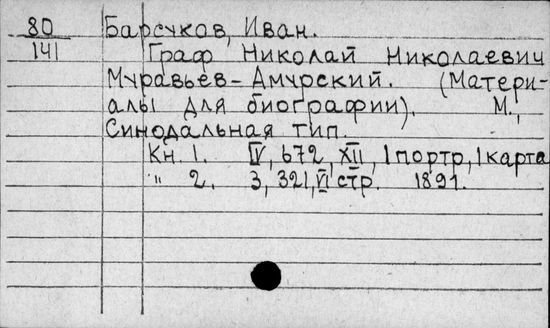 80 Барсуков, Иван.
141 Граф Николай Николаевич
Муравьев-Амурский. (Матери-
алы для биографии). М.,
Синодальная тип.
Кн. 1. IV, 672, XII, 1 портр, 1 карта
" 2. 3, 321, VI стр. 1891.